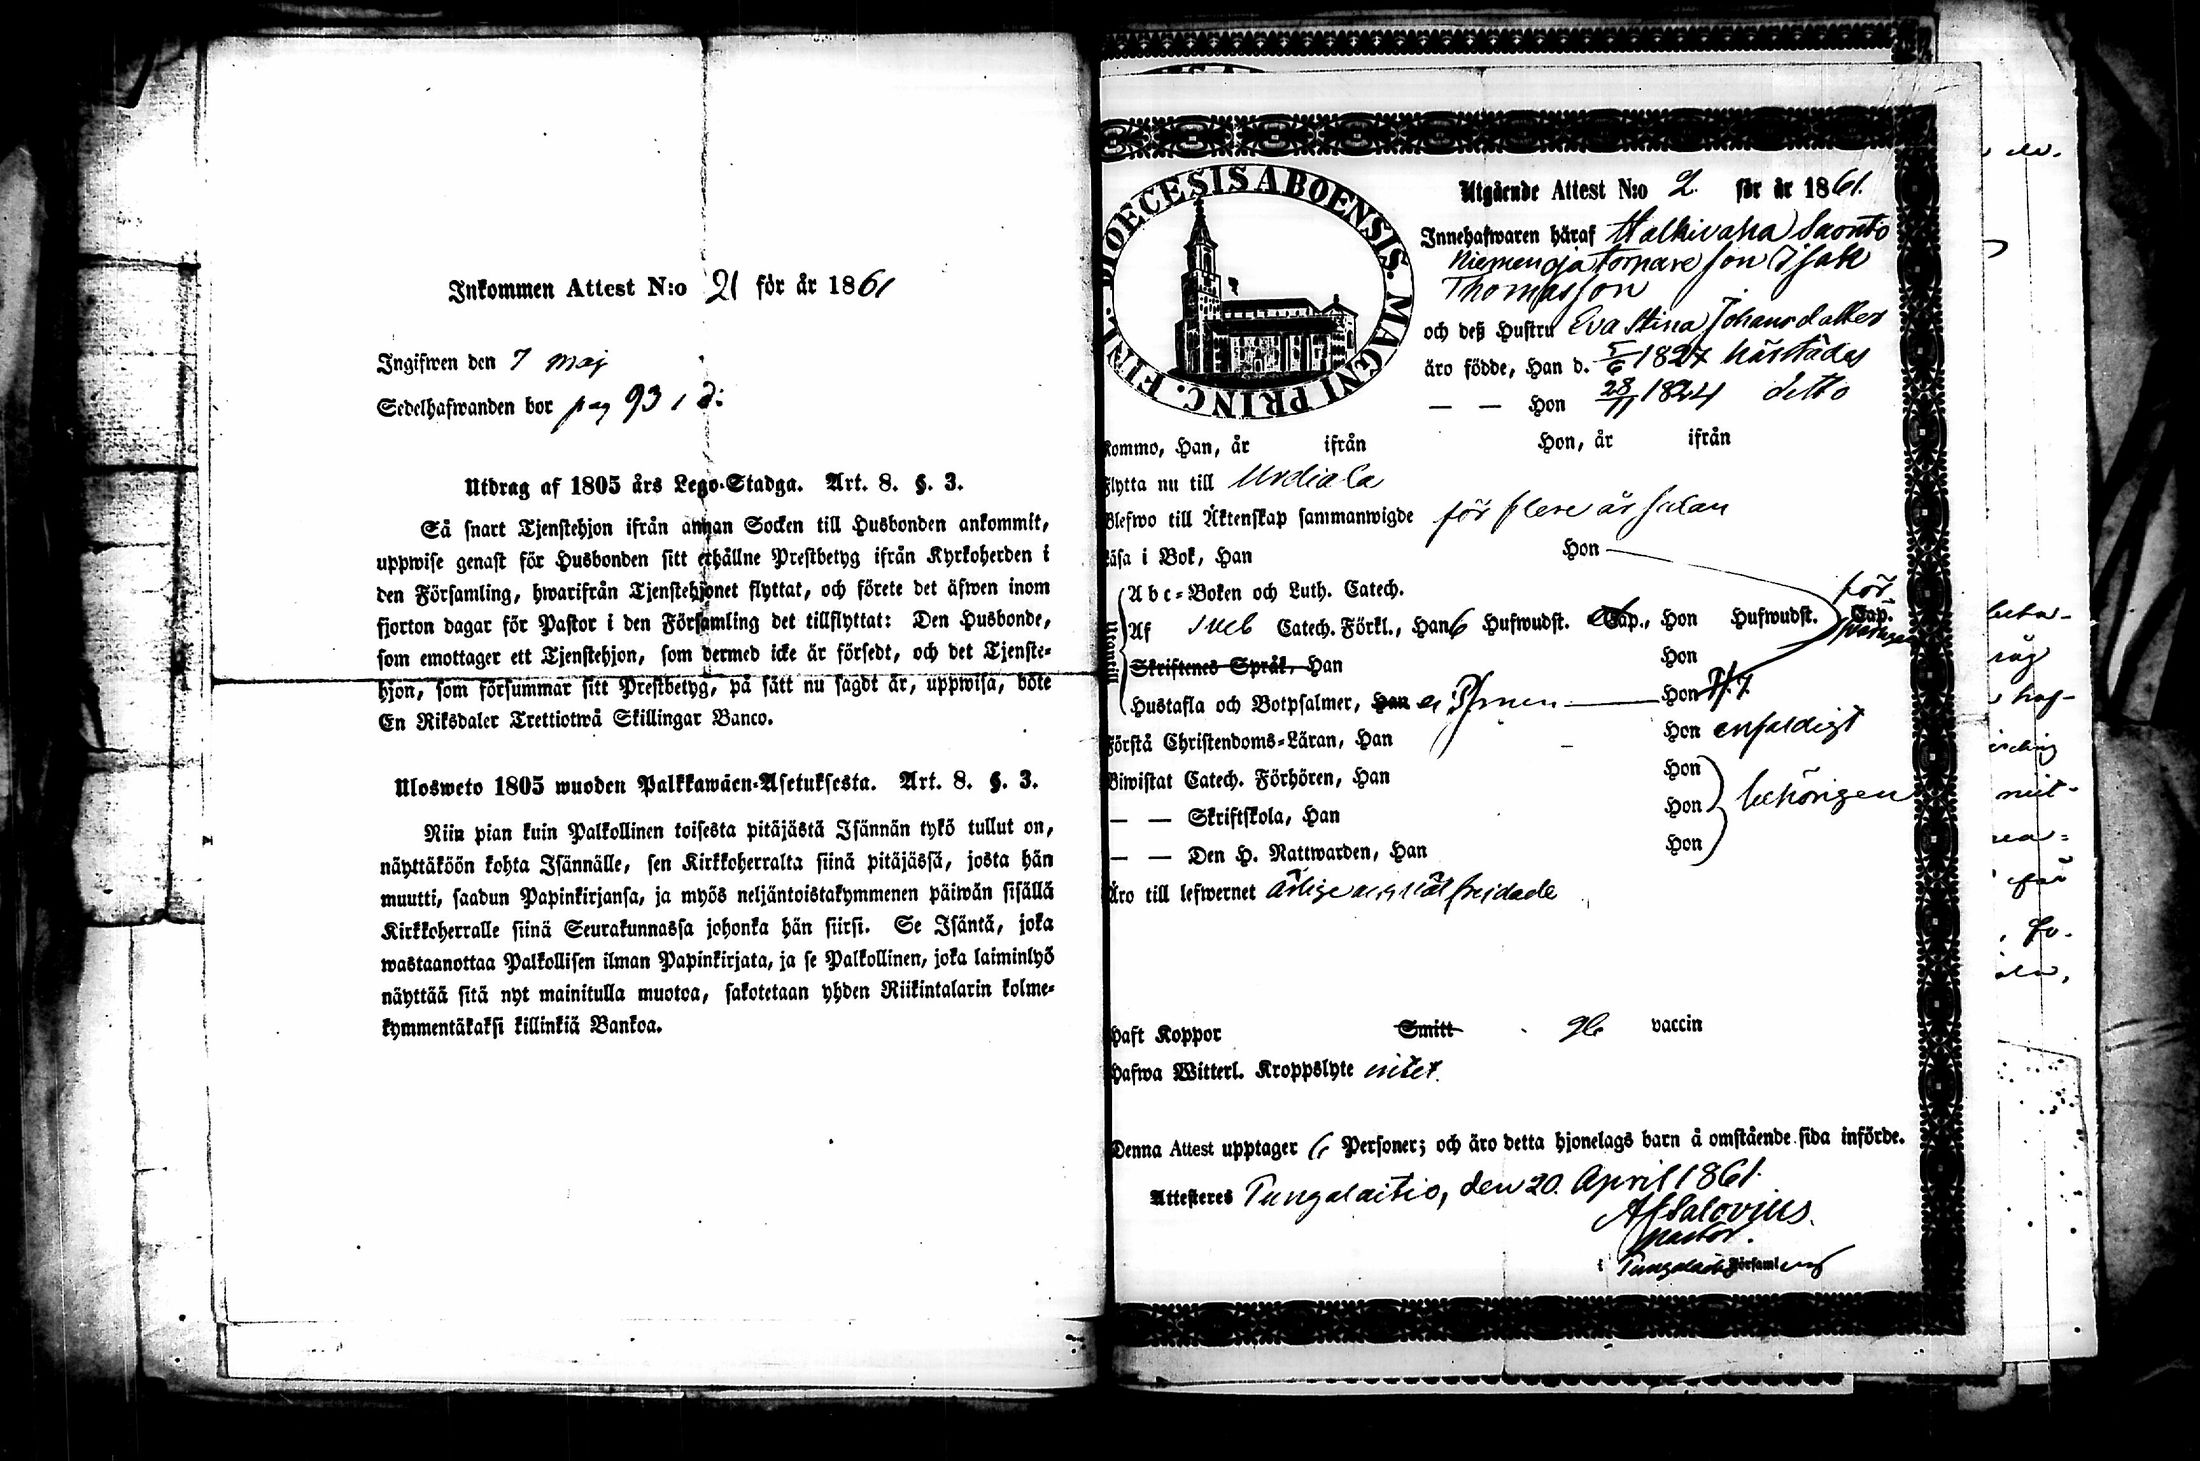 Inkommen Attest N:o 21 för år 1861
Ingifwen den 7 maj
Sedelhafwanden bor pag 93
Utdrag af 1805 års Lego-Stadga. Art. 8. §. 3.
Så snart Tjenstehjon ifrån annan Socken till Husbonden ankommit,
uppwise genast för Husbonden sitt erhållne Prestbetyg ifrån Kyrkoherden i
den Församling, hwarifrån Tjenstehjonet flyttat, och förete det äfwen inom
fjorton dagar för Pastor i den Församling det tillflyttat: Den Husbonde,
som emottager ett Tjenstehjon, som dermed icke är försedt, och det Tjenste-
hjon, som försummar sitt Prestbetyg, på sätt nu sagdt är, uppwisa, böte
En Riksdaler Trettiotwå Skillingar Banco.
Ulosweto 1805 wuoden Palkkawäen-Asetuksesta. Art. 8. §. 3.
Niin pian kuin Palkollinen toisesta pitäjästä Isännän tykö tullut on,
näyttäköön kohta Isännälle, sen Kirkkoherralta siinä pitäjässä, josta hän
muutti, saadun Papinkirjansa, ja myös neljäntoistakymmenen päiwän sisällä
Kirkkoherralle siinä Seurakunnassa johonka hän siirsi. Se Isäntä, joka
wastaanottaa Palkollisen ilman Papinkirjata, ja se Palkollinen, joka laiminlyö
näyttää sitä nyt mainitulla muotoa, sakotetaan yhden Riikintalarin kolme-
kymmentäkaksi killinkiä Bankoa.
DIOECESIS ABOENSIS. MAGNI PRINC. FINL.
Utgående Attest N:o 2. för år 1861.
Innehafwaren häraf
son Isak
Thomasson
och deß Hustru Eva Stina Johansdotter
äro födde, Han d. 5/6 1827 härstädes
— — Hon 28/11 1824 ditto
kommo, Han, år ifrån Hon, år ifrån
Flytta nu till Urdiala
Blefwo till Äktenskap sammanwigde för flere år sedan
Läsa i Bok, Han Hon
Utantill
Abc-Boken och Luth. Catech.
Af Catech. Förkl., Han 6 Hufwudst. Cap., Hon Hufwudst. Cap.
Skriftenes Språk, Han Hon
Hustafla och Botpsalmer, Han Hon
Förstå Christendoms-Läran, Han Hon enfaldigt
Biwistat Catech. Förhören, Han Hon
— — Skriftskola, Han Hon behörigen
— — Den H. Nattwarden, Han Hon
Äro till lefwernet ärlige och väl frejdade
Haft Koppor Smitt vaccin
Hafwa Witterl. Kroppslyte intet.
Denna Attest upptager 6 Personer; och äro detta hjonelags barn å omstående sida införde.
Attesteres Pungalaitio, den 20. April 1861.
AfSalovius.
Pastor.
i Pungalaitio Församling